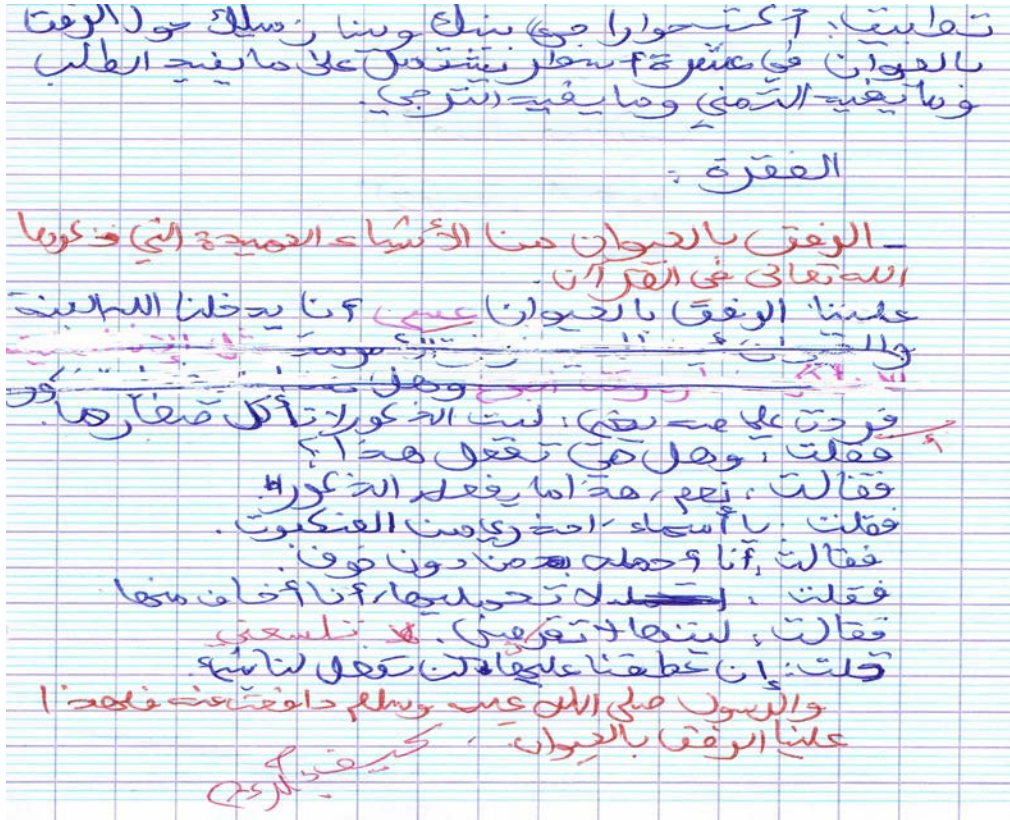 تطبيق: أكتب حوارا جرى بينك وبين زميلك حول الرفق
بالحيوان في عشرة أسطر يشتمل على ما يفيد الطلب
وما يفيد التمني وما يفيد الترجي.
الفقرة :
- الرفق بالحيوان من الأشياء الحميدة التي ذكرها
الله تعالى في القرآن.
علينا الرفق بالحيوان عسى أن يدخلنا الله الجنة
وهل
فردت علي صديقتي: ليت الذكور لا تأكل صغارها.
فقلت : وهل هي تفعل هذا؟
فقالت : نعم، هذا ما يفعله الذكور.
فقلت : يا أسماء احذري من العنكبوت.
فقالت : أنا أحمله من دون خوف.
فقلت : لا تحمليها، أنا أخاف منها
فقالت : ليتها لا تقرصني. تلسعني
قلت : إن عطفنا عليها لن تفعل لنا شيء.
والرسول صلى الله عليه وسلم دافعت عنه فلهذا
علينا الرفق بالحيوان.